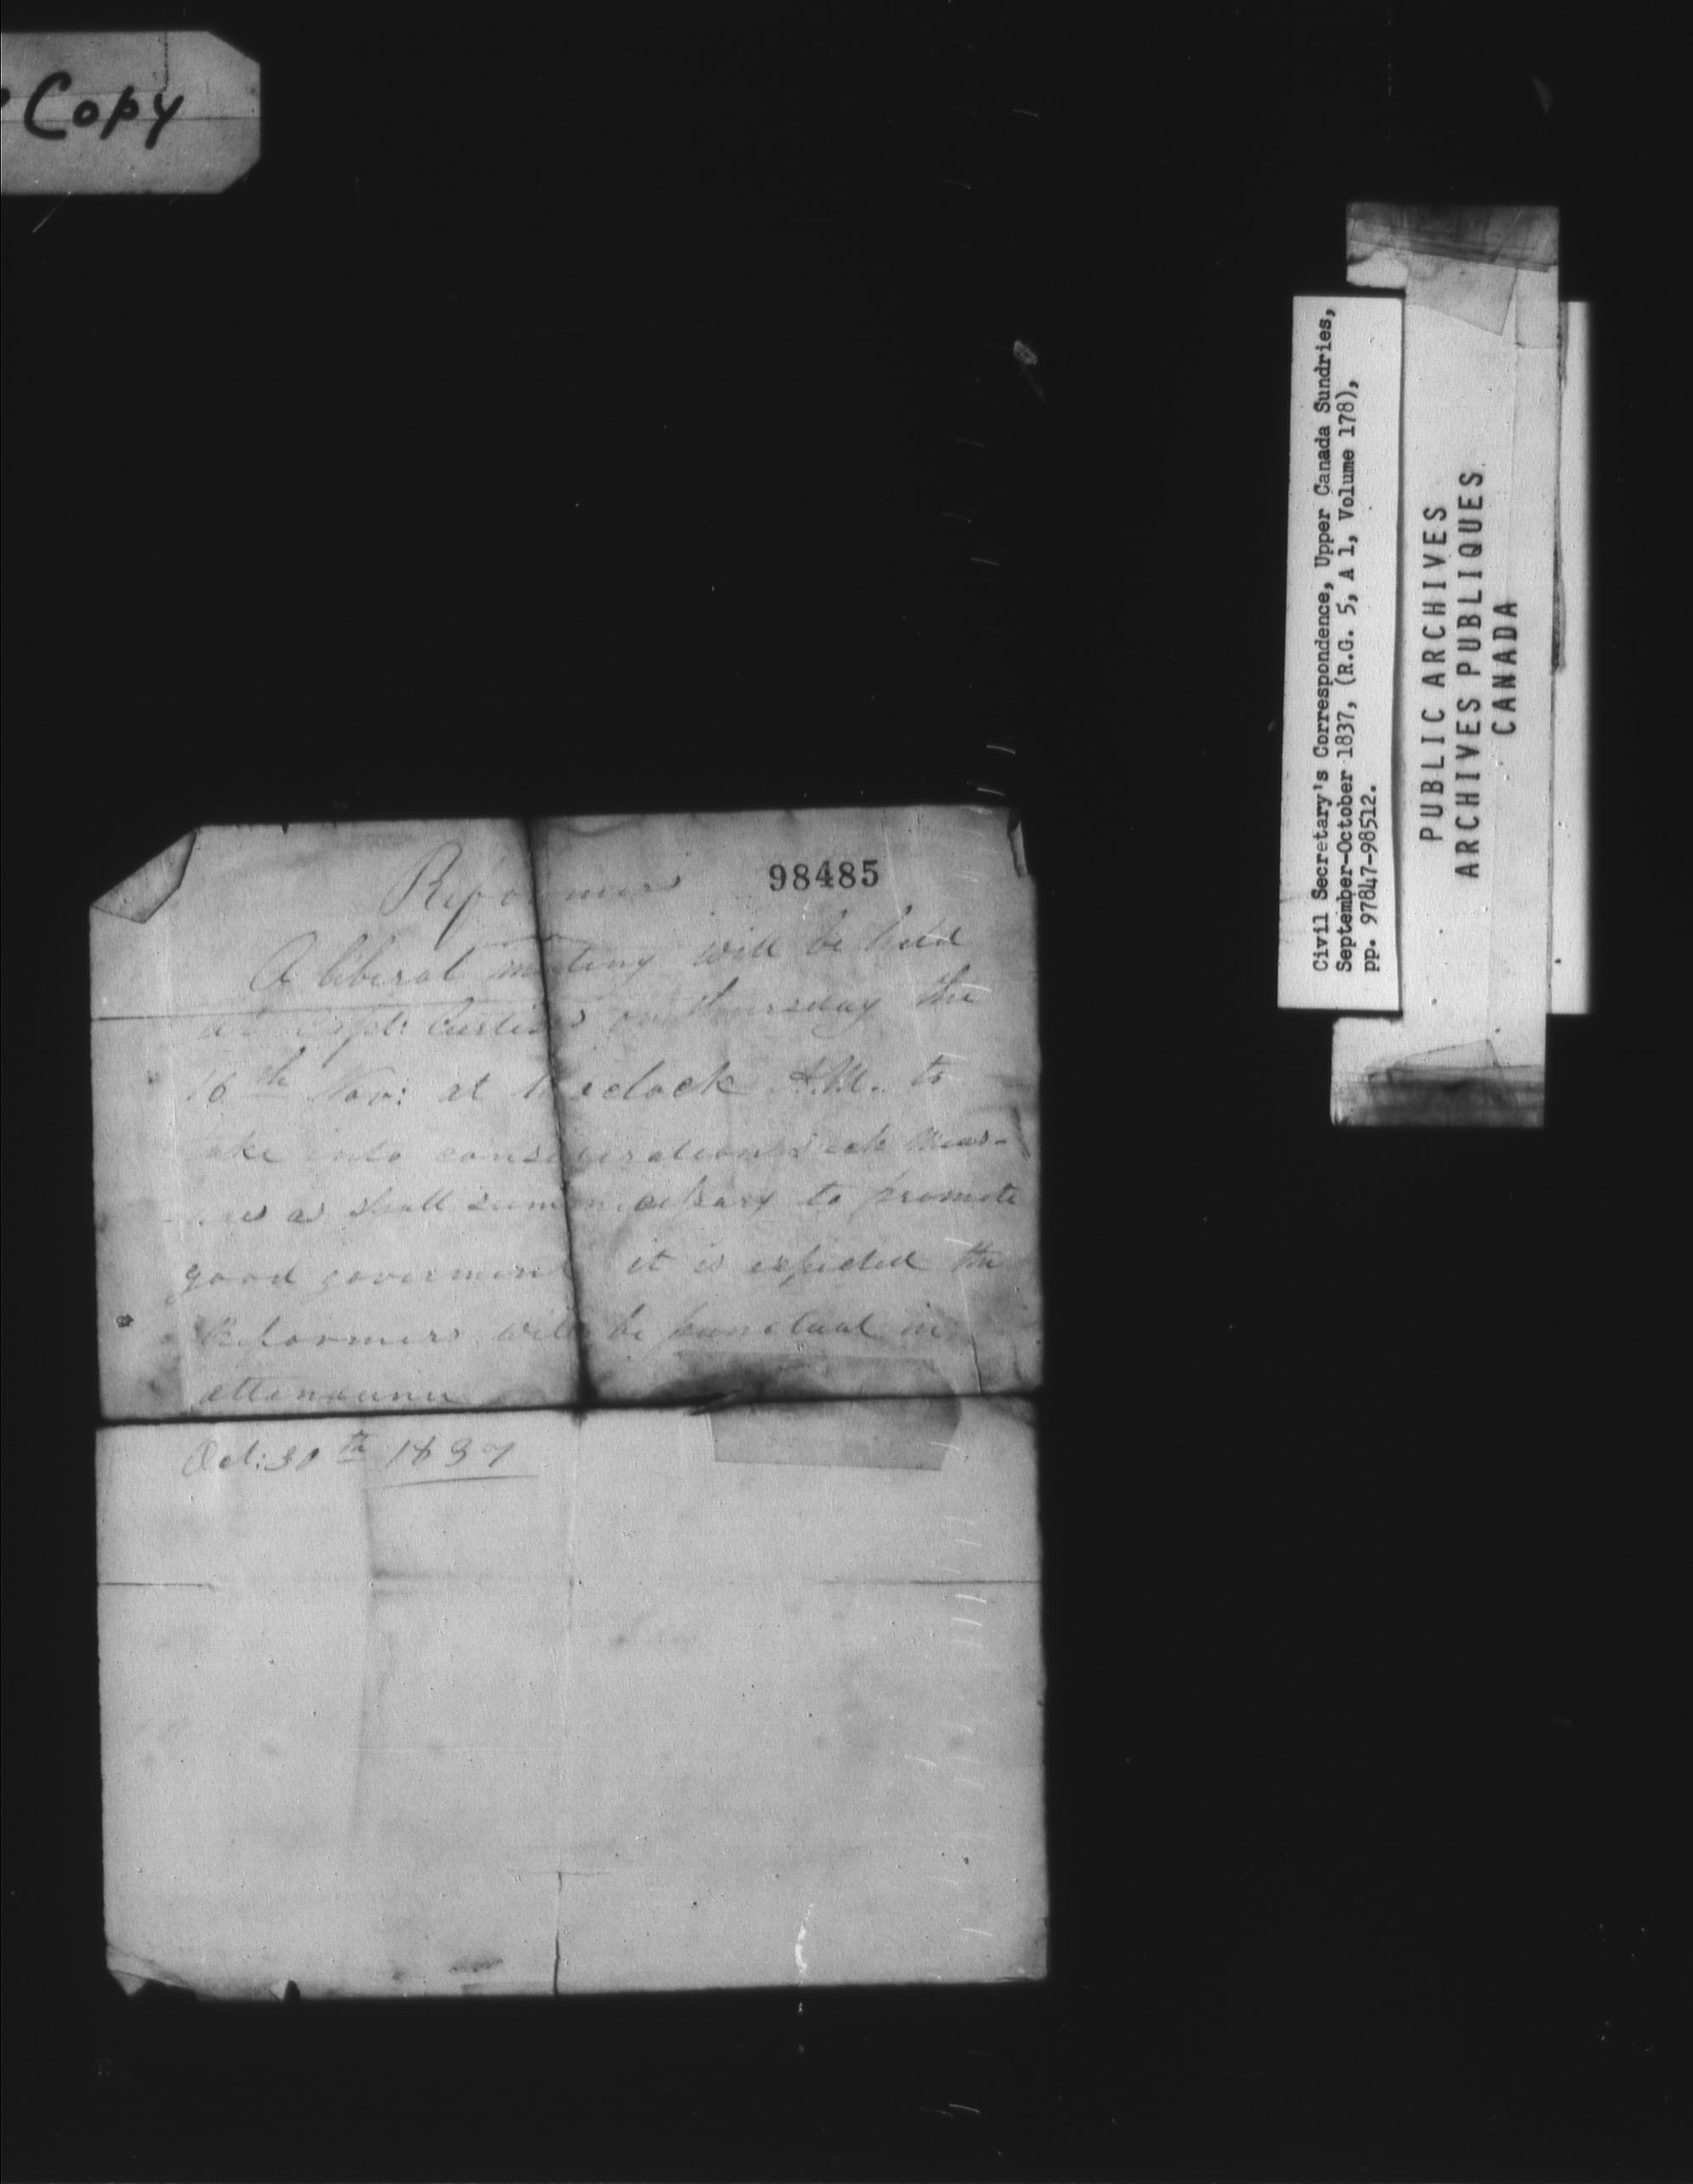 Copy
98485
Reformers
A liberal meeting will be held
at Capt: Curtises on thursday the
16th Nov: at oclock A.M. to
take into consideration such meas-
ures as shall seem necessary to promote
good goverment it is expected the
Reformers will be punctual in
attendance
Oct: 30th 1837
Civil Secretary's Correspondence, Upper Canada Sundries,
September-October 1837, (R.G. 5, A 1, Volume 178),
pp. 97847-98512.
PUBLIC ARCHIVES
ARCHIVES PUBLIQUES
CANADA